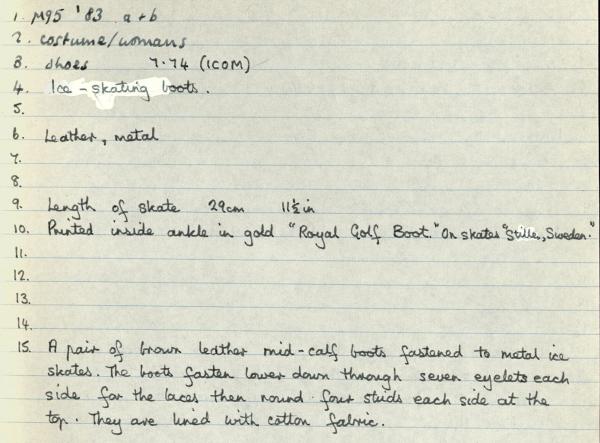 1. M95 '83 a+b
2. costume/womans
3. shoes 7.74 (ICOM)
4. Ice-skating boots.
5.
6. Leather, metal
7.
8.
9. Length of skate 29cm 11½in
10. Printed inside ankle in gold "Royal Golf Boot." On skates "Stille, Sweden."
11.
12.
13.
14.
15. A pair of brown leather mid-calf boots fastened to metal ice
skates. The boots fasten lower down through seven eyelets each
side for the laces then round four studs each side at the
top. They are lined with cotton fabric.